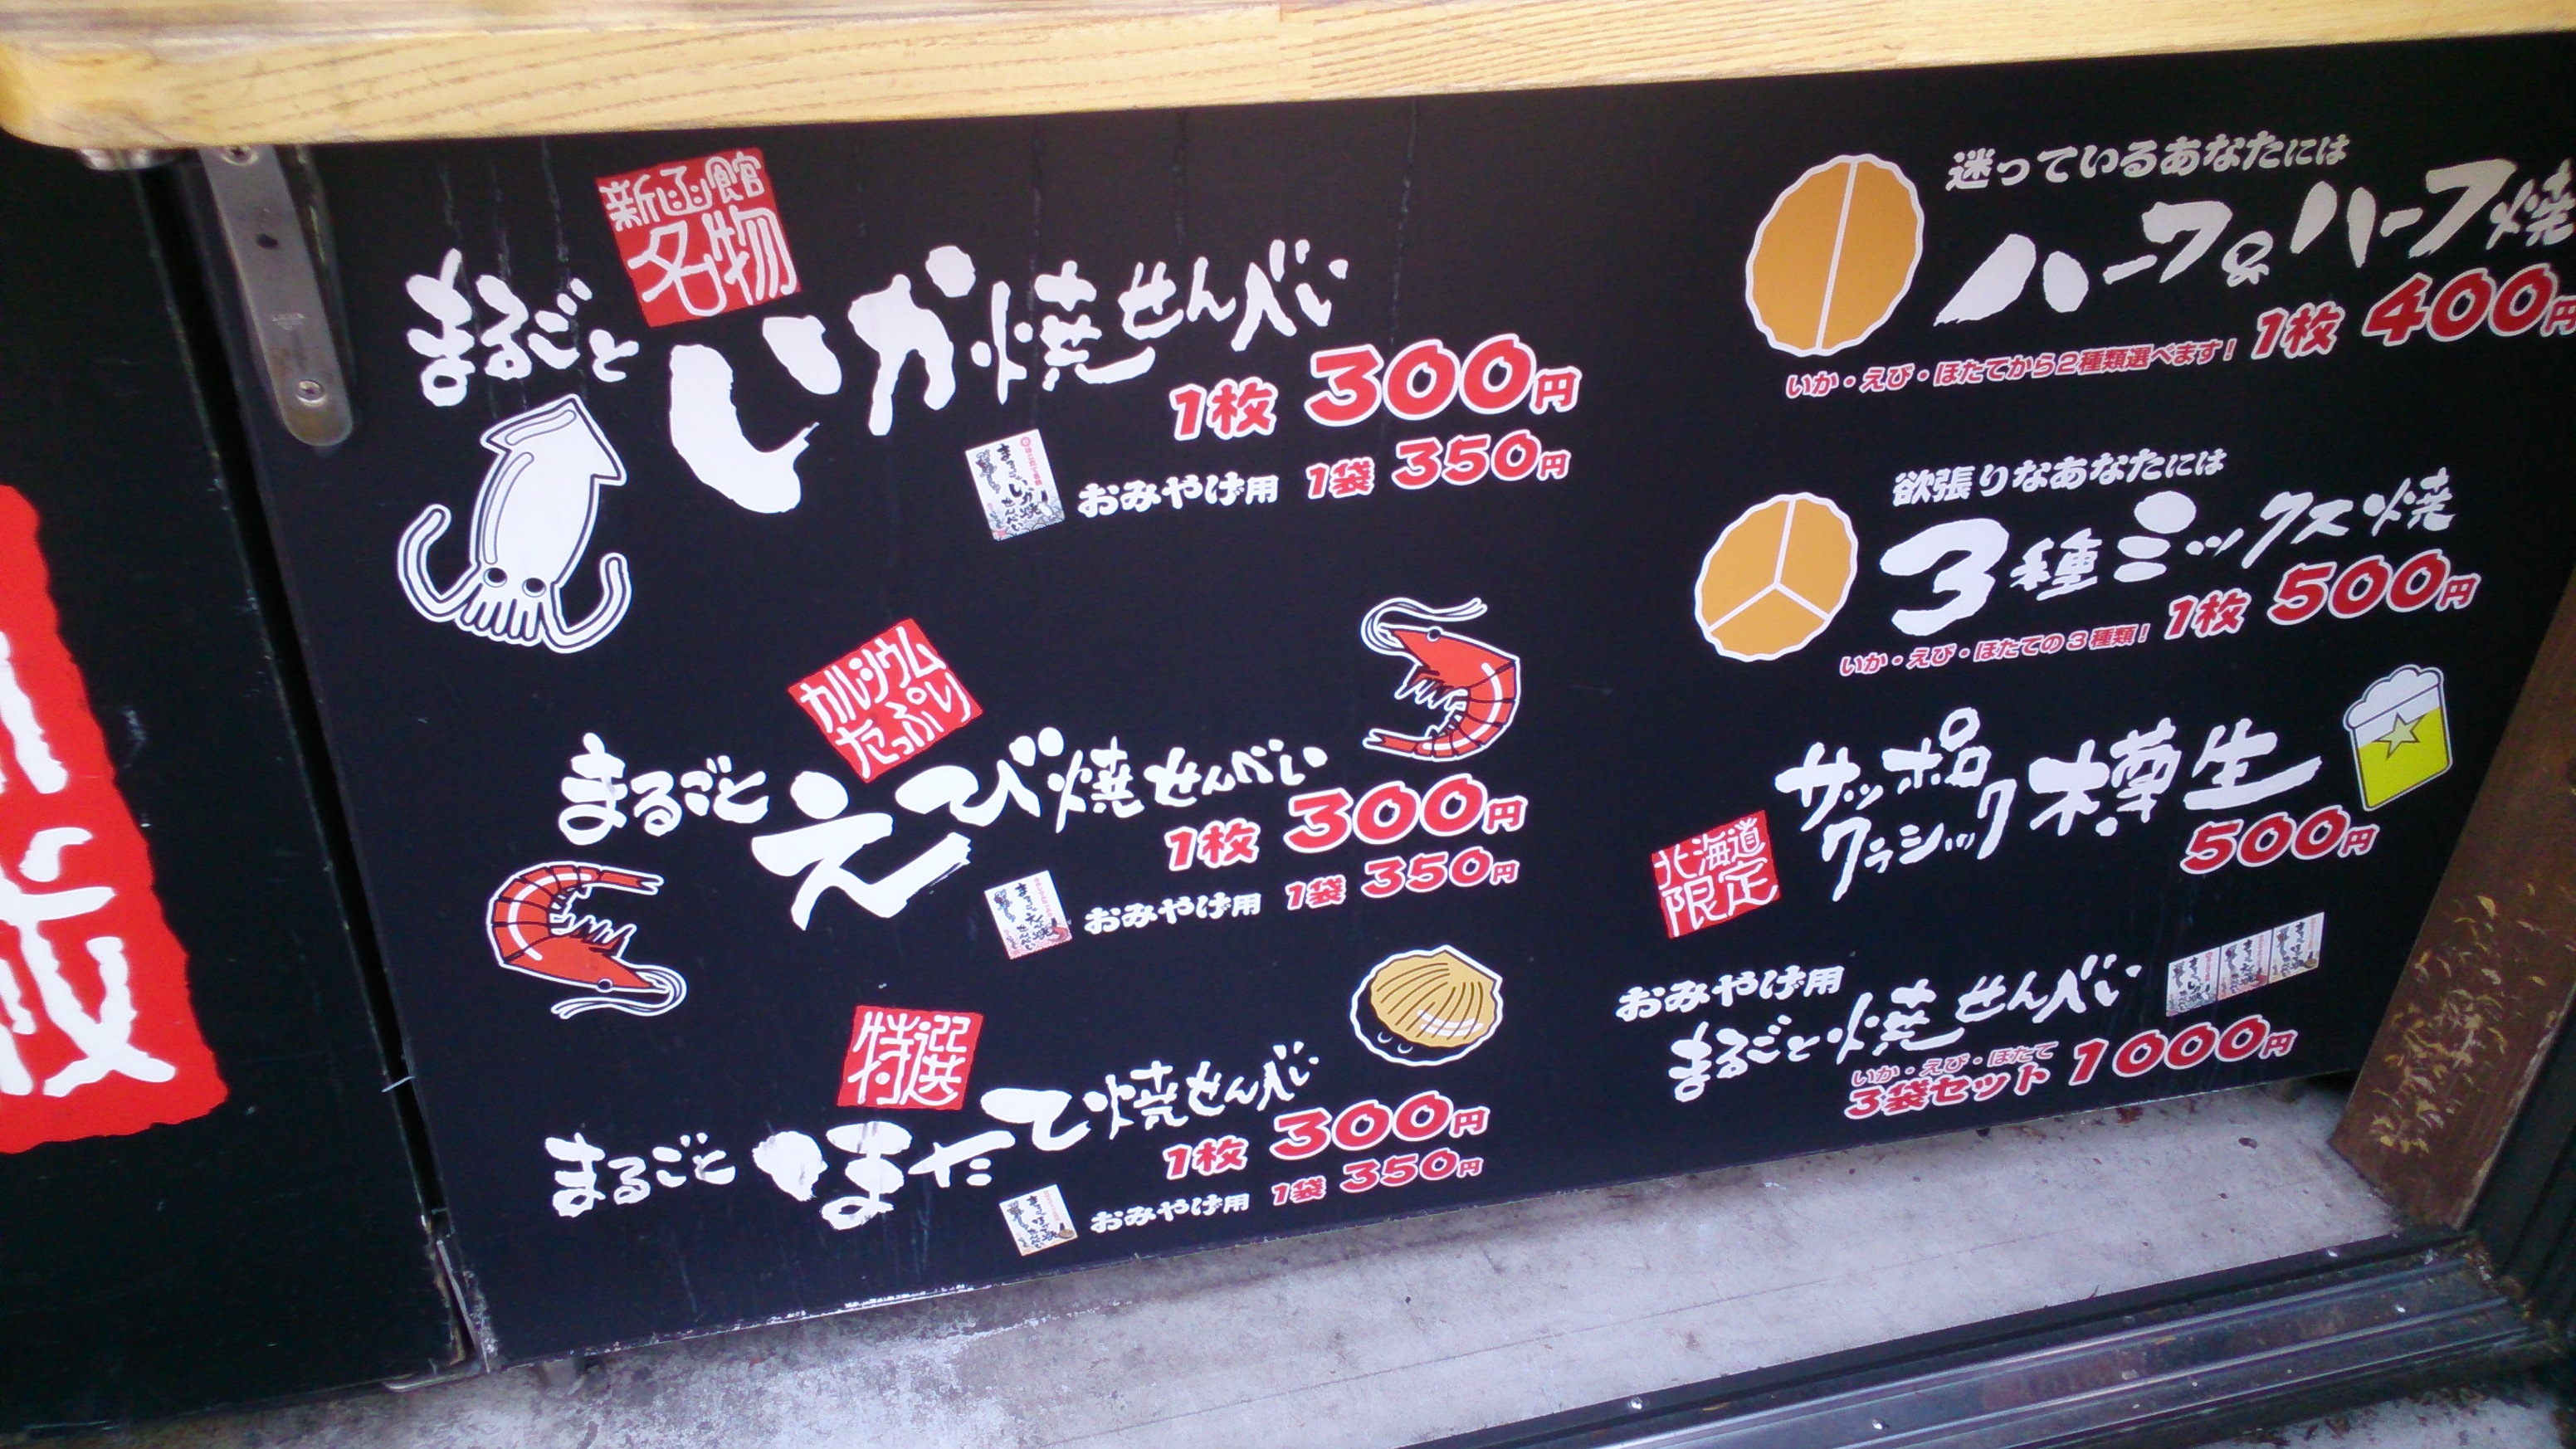 新函館
名物
まるごと
いか焼せんべい
1枚 300円
おみやげ用 1袋 350円
カルシウム
たっぷり
まるごと
えび焼せんべい
1枚 300円
おみやげ用 1袋 350円
特選
まるごと
ほたて焼せんべい
1枚 300円
おみやげ用 1袋 350円
迷っているあなたには
ハーフ&ハーフ焼
いか・えび・ほたてから2種類選べます! 1枚 400円
欲張りなあなたには
3種ミックス焼
いか・えび・ほたての3種類! 1枚 500円
北海道
限定
サッポロ
クラシック樽生
500円
おみやげ用
まるごと焼せんべい
いか・えび・ほたて
3袋セット 1000円